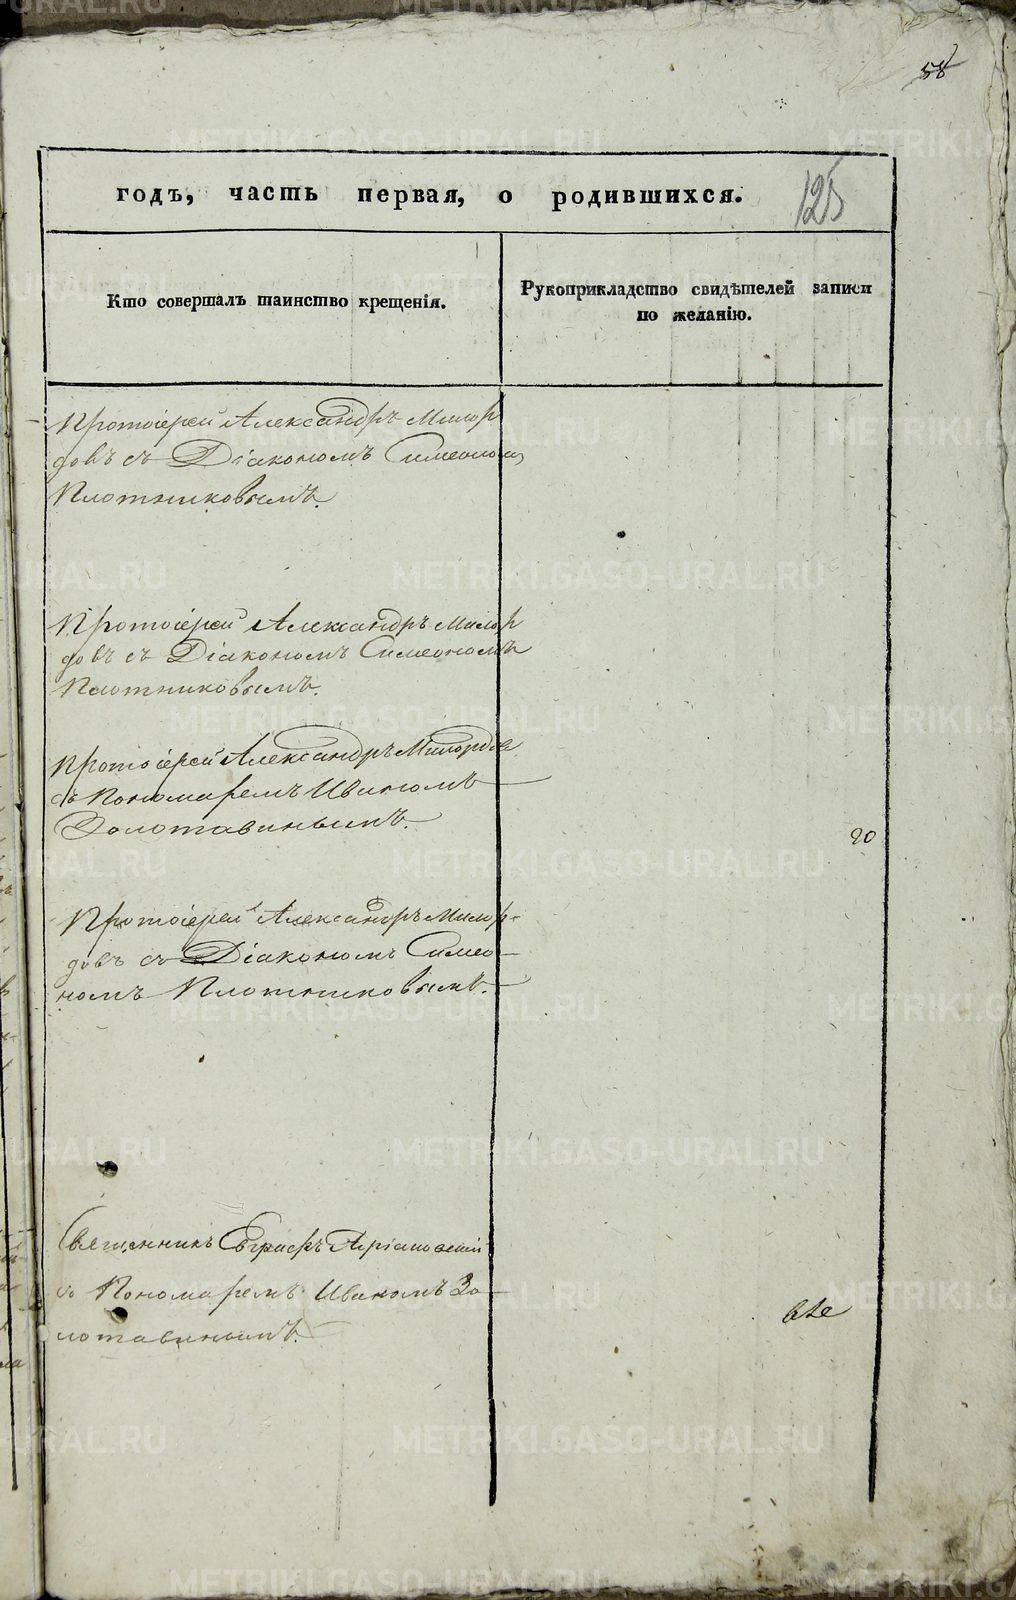 58
годъ, часть первая, о родившихся.
125
Кто совершалъ таинство крещенія.
Рукоприкладство свидѣтелей записи
по желанію.
Протоіерей Александръ Милор
довъ съ Діакономъ Симеономъ
Плотниковымъ.
Протоіерей Александръ Милор
довъ съ Діакономъ Симеономъ
Плотниковымъ.
Протоіерей Александръ Милордовъ
съ Пономаремъ Иваномъ
Золотавинымъ.
20
Протоіерей Александръ Милор-
довъ съ Діакономъ Симео-
номъ Плотниковымъ.
Священникъ Евграфъ
съ Пономаремъ Иваномъ Зо-
лотавинымъ.
METRIKI.GASO-URAL.RU